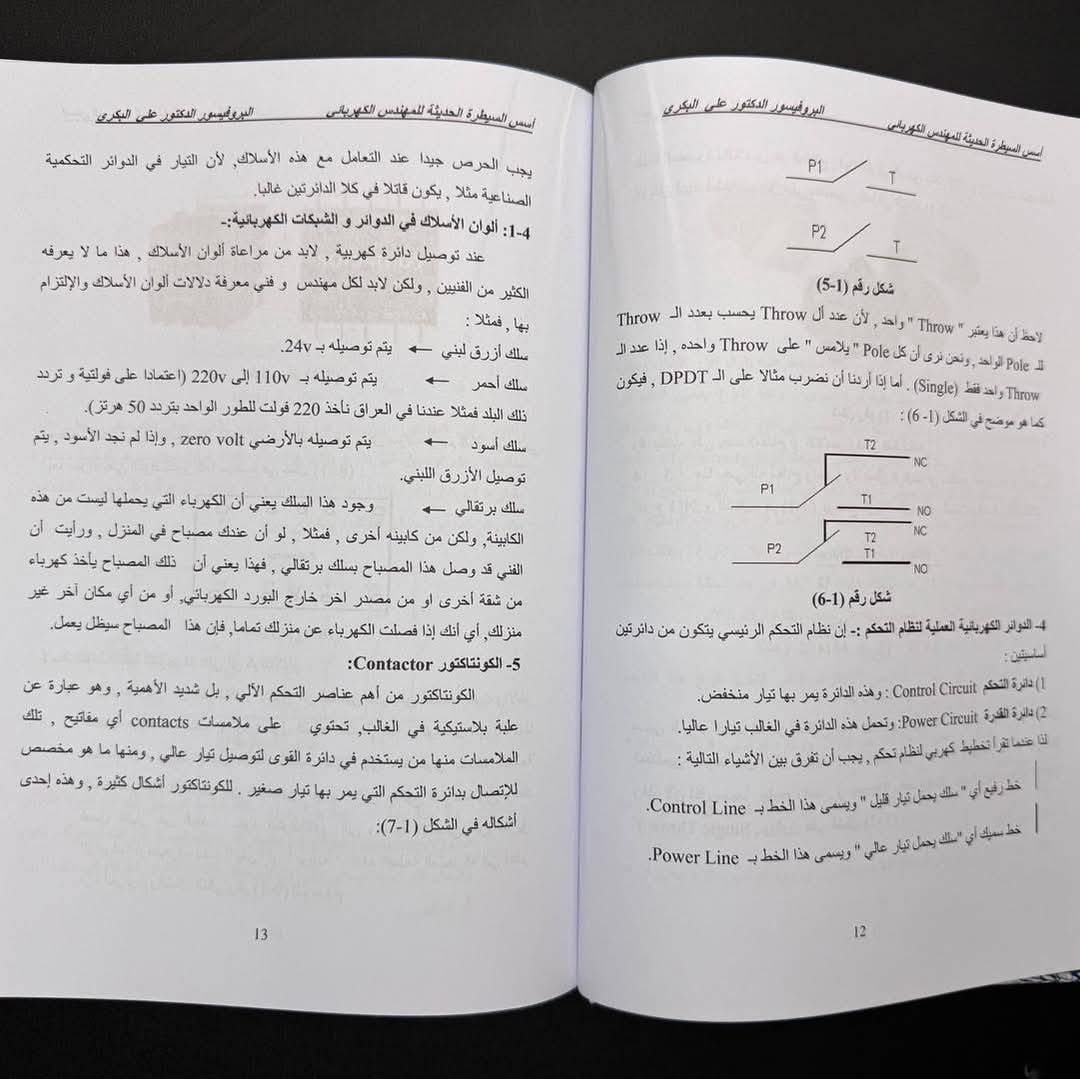 أسس السيطرة الحديثة للمهندس الكهربائي البروفيسور الدكتور علي البكري
P1 T
P2 T
شكل رقم (1-5)
لاحظ أن هذا يعتبر " Throw " واحد , لأن عدد أل Throw يحسب بعدد الـ Throw
للـ Pole الواحد , ونحن نرى أن كل Pole " يلامس " على Throw واحده , إذا عدد الـ
Throw واحد فقط (Single) . أما إذا أردنا أن نضرب مثالا على الـ DPDT , فيكون
كما هو موضح في الشكل (1- 6) :
T2
NC
P1
T1
NO
NC
T2
P2
T1
NO
شكل رقم (1-6)
4- الدوائر الكهربائية العملية لنظام التحكم :- إن نظام التحكم الرئيسي يتكون من دائرتين
أساسيتين :
1) دائرة التحكم Control Circuit : وهذه الدائرة يمر بها تيار منخفض.
2) دائرة القدرة Power Circuit: وتحمل هذه الدائرة في الغالب تيارا عاليا.
لذا عندما تقرأ تخطيط كهربي لنظام تحكم , يجب أن تفرق بين الأشياء التالية :
خط رفيع أي " سلك يحمل تيار قليل " ويسمى هذا الخط بـ Control Line.
خط سميك أي "سلك يحمل تيار عالي " ويسمى هذا الخط بـ Power Line.
12
أسس السيطرة الحديثة للمهندس الكهربائي البروفيسور الدكتور علي البكري
يجب الحرص جيدا عند التعامل مع هذه الأسلاك, لأن التيار في الدوائر التحكمية
الصناعية مثلا , يكون قاتلا في كلا الدائرتين غالبا.
1-4: ألوان الأسلاك في الدوائر و الشبكات الكهربائية:-
عند توصيل دائرة كهربية , لابد من مراعاة ألوان الأسلاك , هذا ما لا يعرفه
الكثير من الفنيين , ولكن لابد لكل مهندس و فني معرفة دلالات ألوان الأسلاك والإلتزام
بها , فمثلا :
سلك أزرق لبني ← يتم توصيله بـ 24v.
سلك أحمر ← يتم توصيله بـ 110v إلى 220v (اعتمادا على فولتية و تردد
ذلك البلد فمثلا عندنا في العراق نأخذ 220 فولت للطور الواحد بتردد 50 هرتز).
سلك أسود ← يتم توصيله بالأرضي zero volt , وإذا لم نجد الأسود , يتم
توصيل الأزرق اللبني.
سلك برتقالي ← وجود هذا السلك يعني أن الكهرباء التي يحملها ليست من هذه
الكابينة, ولكن من كابينه أخرى , فمثلا , لو أن عندك مصباح في المنزل , ورأيت أن
الفني قد وصل هذا المصباح بسلك برتقالي , فهذا يعني أن ذلك المصباح يأخذ كهرباء
من شقة أخرى او من مصدر اخر خارج البورد الكهربائي, أو من أي مكان آخر غير
منزلك, أي أنك إذا فصلت الكهرباء عن منزلك تماما, فإن هذا المصباح سيظل يعمل.
5- الكونتاكتور Contactor:
الكونتاكتور من أهم عناصر التحكم الآلي , بل شديد الأهمية , وهو عبارة عن
علبة بلاستيكية في الغالب, تحتوي على ملامسات contacts أي مفاتيح , تلك
الملامسات منها من يستخدم في دائرة القوى لتوصيل تيار عالي , ومنها ما هو مخصص
للإتصال بدائرة التحكم التي يمر بها تيار صغير . للكونتاكتور أشكال كثيرة , وهذه إحدى
أشكاله في الشكل (1-7):
13